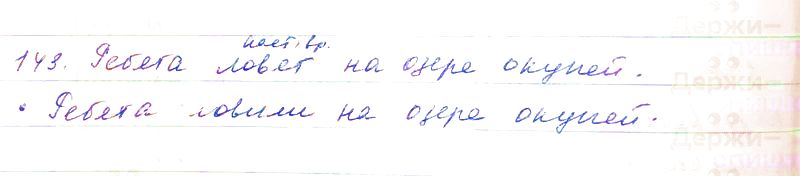 наст. вр.
143. Ребята ловят на озере окуней.
• Ребята ловили на озере окуней.